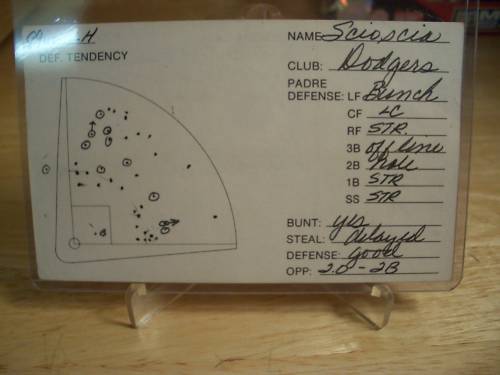 DEF. TENDENCY
NAME Scioscia
CLUB: Dodgers
PADRE
DEFENSE: LF Bunch
CF LC
RF STR.
3B off line
2B hole
1B STR
SS STR
BUNT: yes
STEAL: delayed
DEFENSE: good
OPP: 20-2B